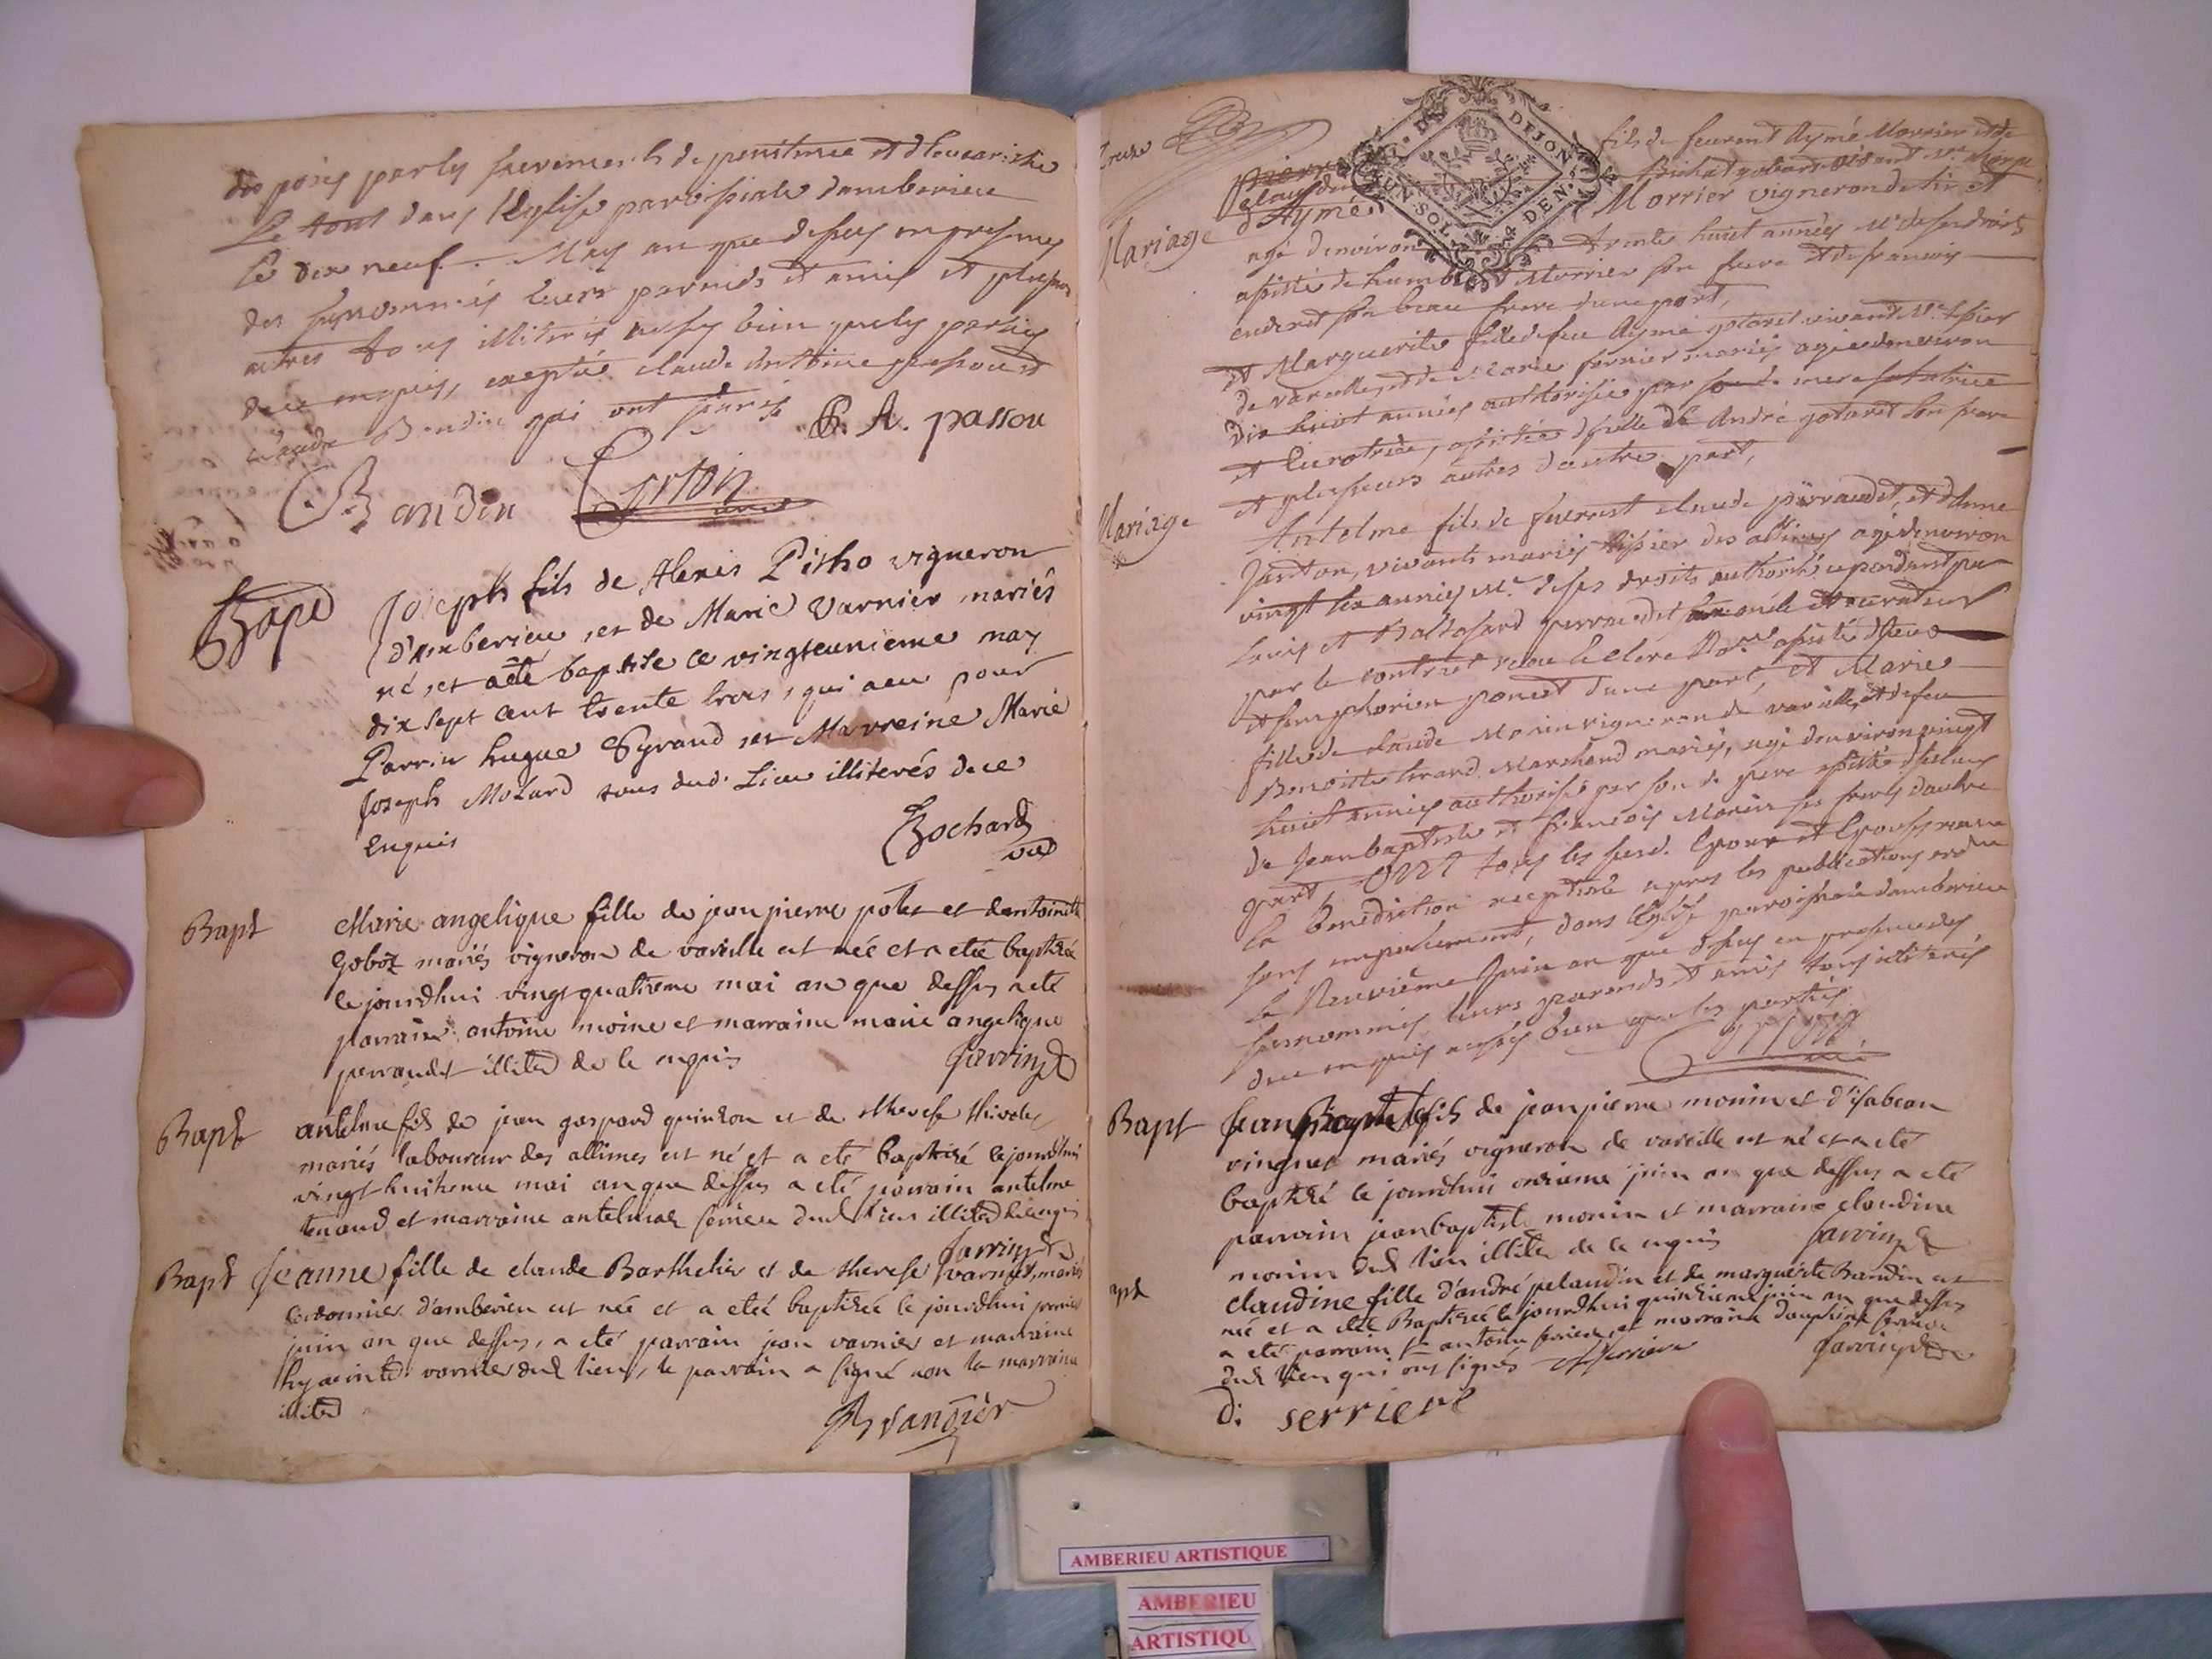 disposés par les sacremens de penitence et d'leucaristie
Le tout dans l'Eglise parroissiale damberieu
le dix neuf May an que dessus en presence
des susnommés leurs parents et amis et plusieurs
autres tous illiterés aussy bien que les parties
de ce enquis, excepté claude Antoine passout et
claude Bandin qui ont signés
C. A. passou
Bandin
Bapt
Joseph fils de Alexis Pitho vigneron
d'amberieu, et de Marie Varnier mariés
né, et a été baptisé ce vingteunieme may
dix sept cent trente trois, qui a eu pour
Parrin hugue Pyraud et Marreine Marie
Joseph Mozard tous dud. Lieu illiterés de ce
Enquis
Bochard
vic
Bapt
Marie angelique fille de jean pierre potet et dantoinette
goboz mariés vigneron de vareille est née et a eté baptisée
le jourdhui vingt quatrieme mai an que dessus a eté
parrain antoine moine et marraine marie angelique
perraudet illiter de ce enquis
Jarrin
Bapt
antelme fils de jean gaspard quinson et de therese thivolet
mariés laboureur des allimes est né et a eté baptisé le jourdhui
vingt huitieme mai an que dessus a eté parrain antelme
tenand et marraine antelmaz dud lieu illiter de ce enquis
Jarrin
Bapt
Jeanne fille de claude Barthelier et de therese varnier, mariés
cordonnier d'amberieu est née et a eté baptisée le jourdhui premier
juin an que dessus, a eté parrain jean varnier et marraine
hyacinte varnier dud lieu, le parrain a signé non la marraine
illiter
Treize
fils de feu Aymé Morrier et de
d'Aymé
Morrier vigneron de
Mariage
agé denviron trente huict années Me de ses droits
assisté de humbert Morrier son frere et de francois
son beau frere d'une part,
et Marguerite fille de feu Aymé gotaret vivant Me tissier
de vareille et de Marie fornier mariés agée denviron
dix huict années authorisée par sa mere sa tutrice
et Curatrice, assistée d'icelle de André gotaret son frere
et plusieurs autres dautre part,
Mariage
Antelme fils de claude perraudet, et d'Anne
Janton, vivants mariés tissier des allimes agé denviron
vingt six années Me de ses droits authorisé cependant par
Louis et Baltasard perraudet son oncle et curateur
par le contrat receu assisté d'iceux
et simphorien poncet d'une part, et Marie
fille de claude Monin vigneron de vareille, et de feu
Benoiste Marchand mariés, agé denviron vingt
huict années authorisée par son dt pere assistée d'iceluy
de Jean baptiste et francois Monin ses freres dautre
part, ONT tous les susd. Epoux et Epouses receu
la Benediction nuptiale apres les publications
sans empechement, dans l'Eglise paroissiale damberieu
le Neuvième Juin an que dessus en presence des
susnommés, leurs parents et amis tous illiterés
de ce enquis aussy bien que les parties
Bapt
Jean Baptiste fils de jean pierre monin et d'isabeau
vinguet mariés vigneron de vareille est né et a eté
baptisé le jourdhui onzieme juin an que dessus a eté
parrain jean baptiste monin et marraine claudine
monin dud lieu illiter de ce enquis
Jarrin
apt
claudine fille d'andré pelaudin et de marguerite Bandin est
née et a eté Baptisée le jourdhui quinzieme juin an que dessus
a eté parrain Sr antoine serriere, et marraine dauphine serriere
dud lieu qui ont signés
Jarrin
D: serriere
DEJON
UN SOL
DEN
AMBERIEU ARTISTIQUE
AMBERIEU
ARTISTIQU